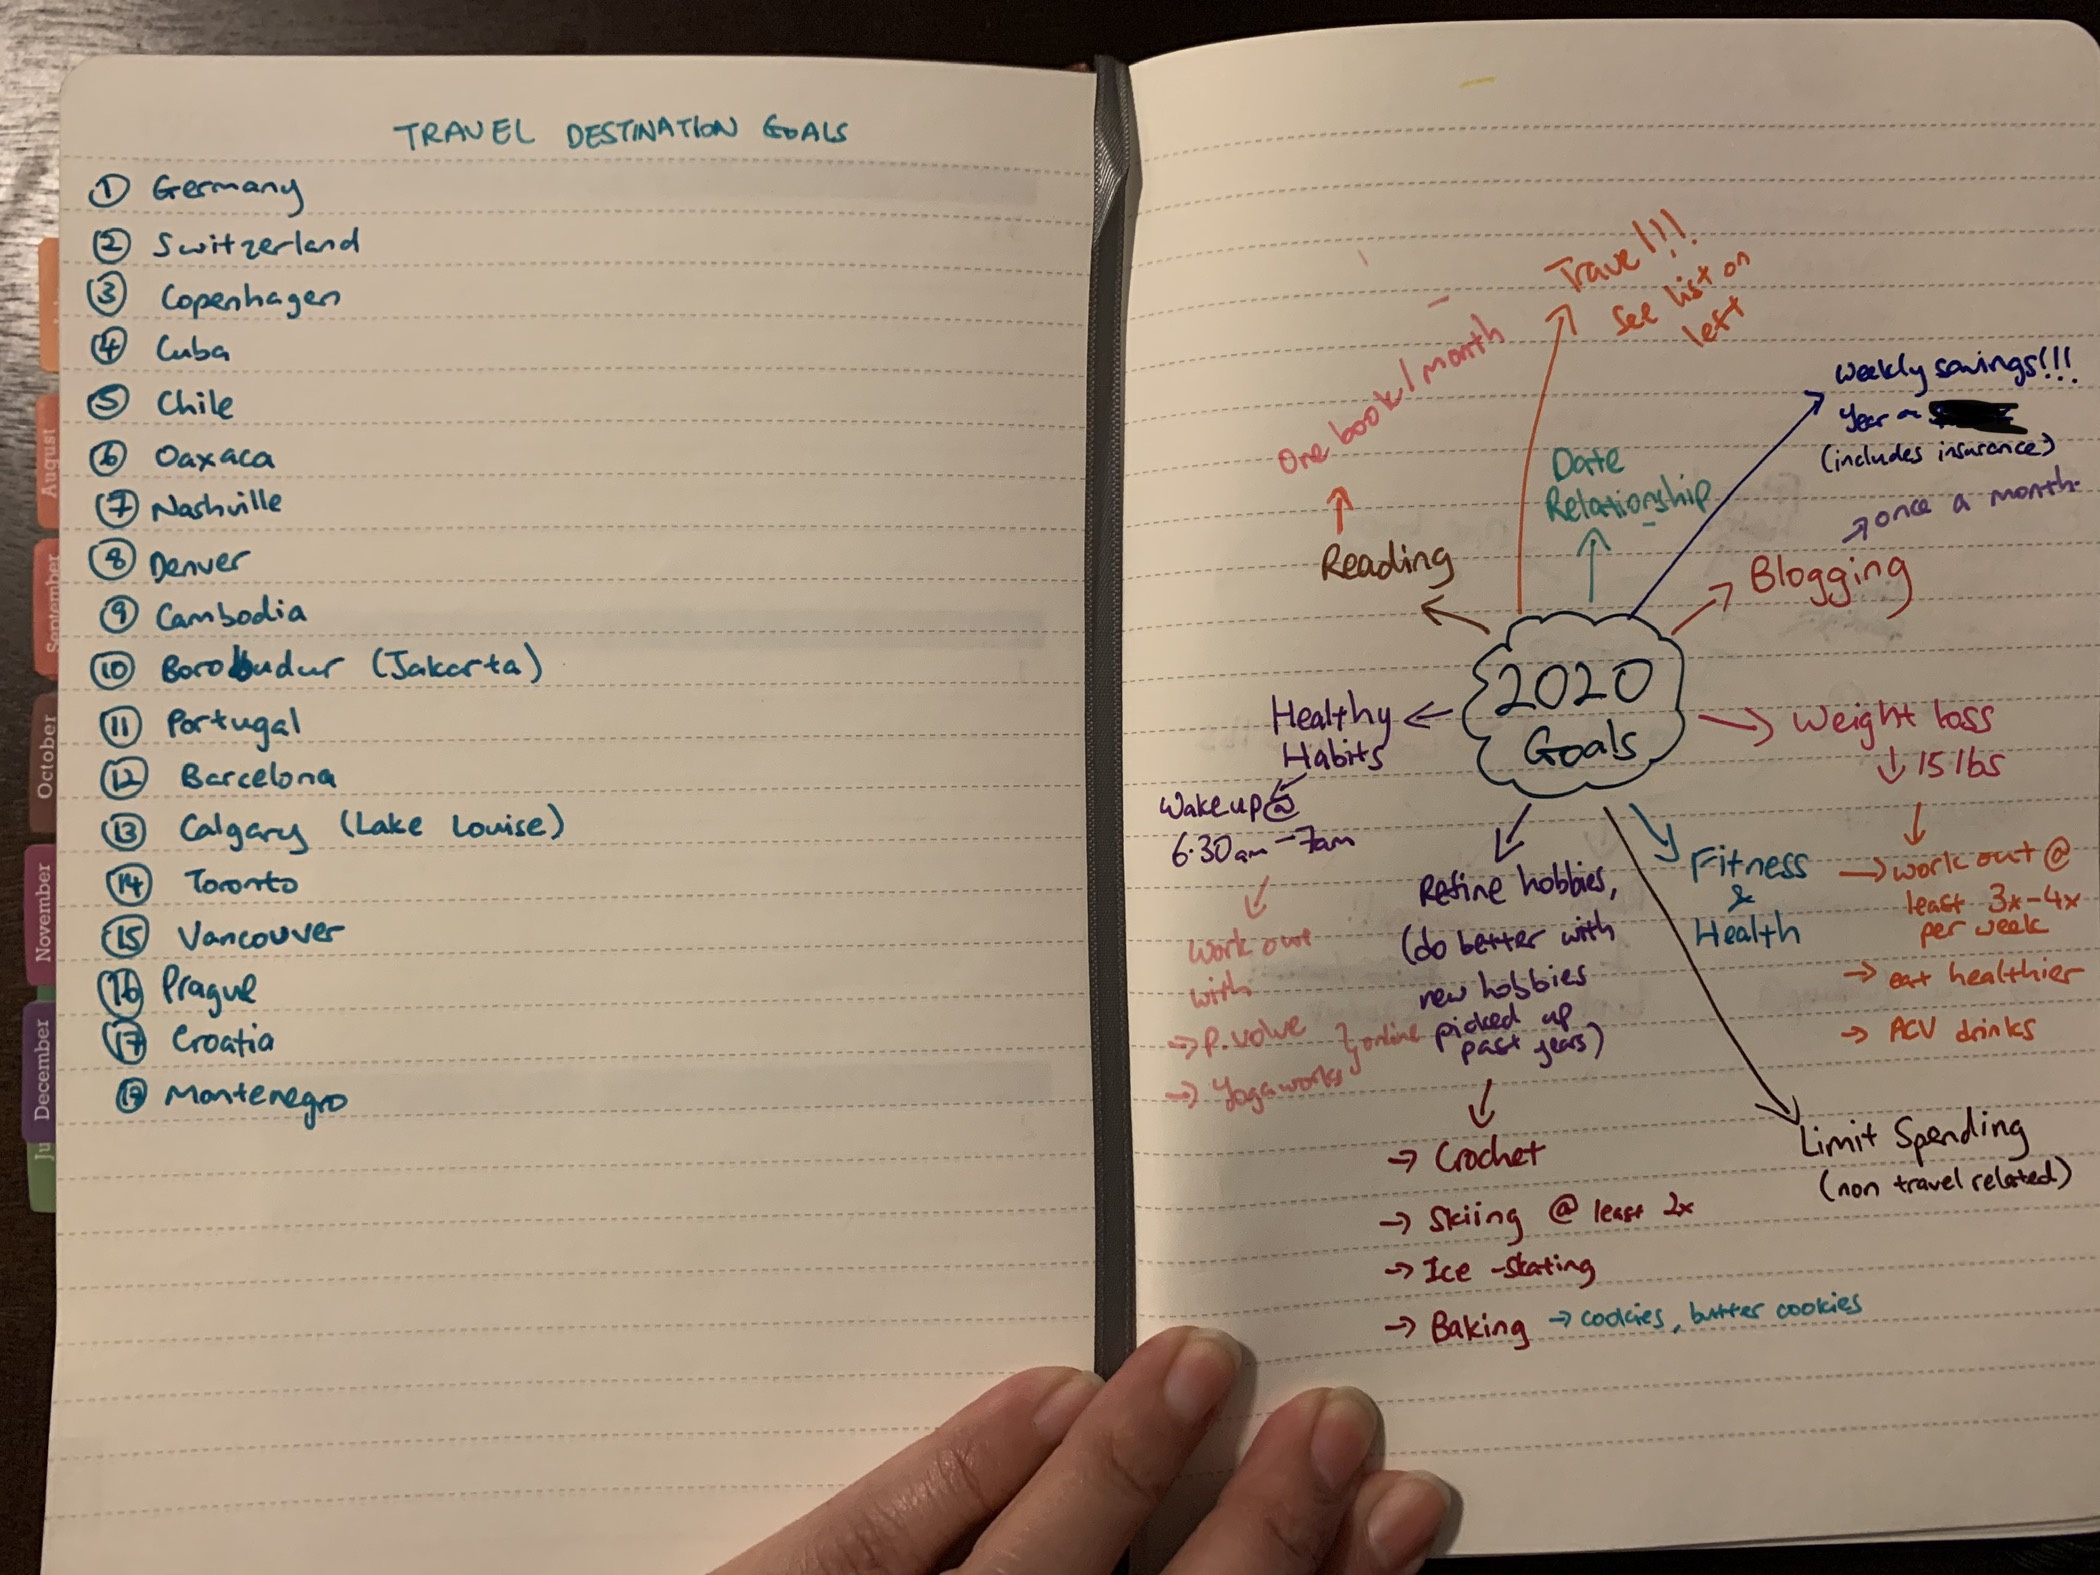 TRAVEL DESTINATION GOALS
① Germany
② Switzerland
③ Copenhagen
④ Cuba
⑤ Chile
⑥ Oaxaca
⑦ Nashville
⑧ Denver
⑨ Cambodia
⑩ Borobudur (Jakarta)
⑪ Portugal
⑫ Barcelona
⑬ Calgary (Lake Louise)
⑭ Toronto
⑮ Vancouver
⑯ Prague
⑰ Croatia
Montenegro
August
September
October
November
December
Ju
2020
Goals
Travel!!!
See list on
left
Date
Relationship
Weekly savings!!!
Year
(includes insurance)
Blogging
→ once a month.
Weight loss
↓ 15 lbs
Fitness
&
Health
→ work out @
least 3x-4x
per week
→ eat healthier
→ ACV drinks
Limit Spending
(non travel related)
Refine hobbies,
(do better with
new hobbies
picked up
past years)
→ Crochet
→ Skiing @ least 2x
→ Ice-skating
→ Baking → cookies, butter cookies
Healthy
Habits
Wake up @
6.30am-7am
Work out
with
→ P.volve
→ Yogaworks
} online
Reading
One book/month